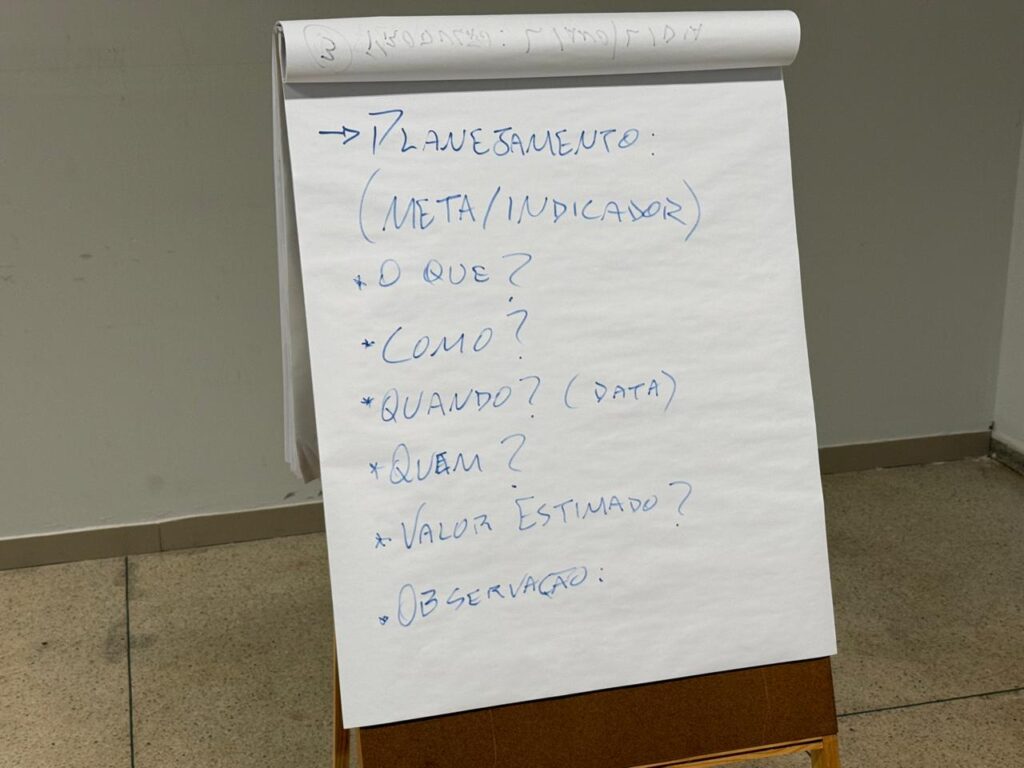 → PLANEJAMENTO:
(META/INDICADOR)
* O QUE?
* COMO?
* QUANDO? (DATA)
* QUEM?
* VALOR ESTIMADO?
* OBSERVAÇÃO: